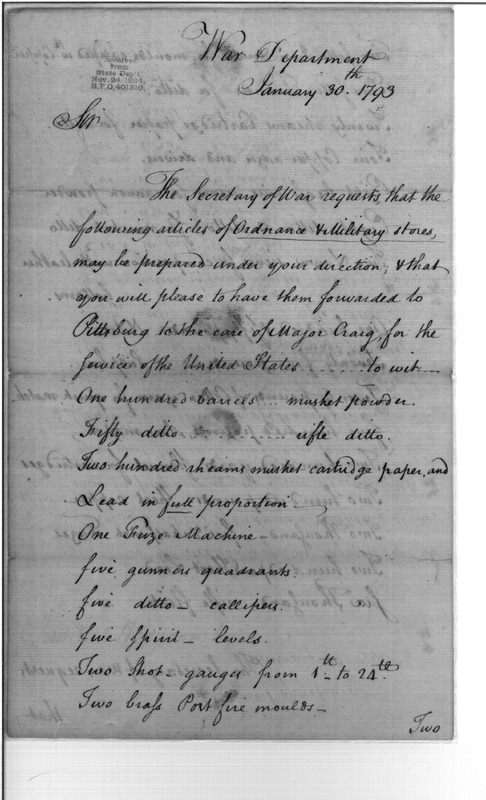 War Department
January 30th. 1793
Received
from
State Dep't
Nov. 24, 1894,
R.P.O, 401310.
Sir
The Secretary of War requests, that the
following articles of Ordnance & Military stores,
may be prepared under your direction; & that
you will please to have them forwarded to
Pittsburg to the care of Major Craig, for the
Service of the United States ...... to wit—
One hundred barrels .... musket powder.
Fifty ditto ............ rifle ditto.
Two hundred rheams musket cartridge paper, and
Lead in full proportion—
One Fuze Machine
five gunners quadrants.
five ditto — callipers.
five spirit — levels.
Two Shot - gauges from 1lb to 24lb.
Two brass Port fire moulds—
Two